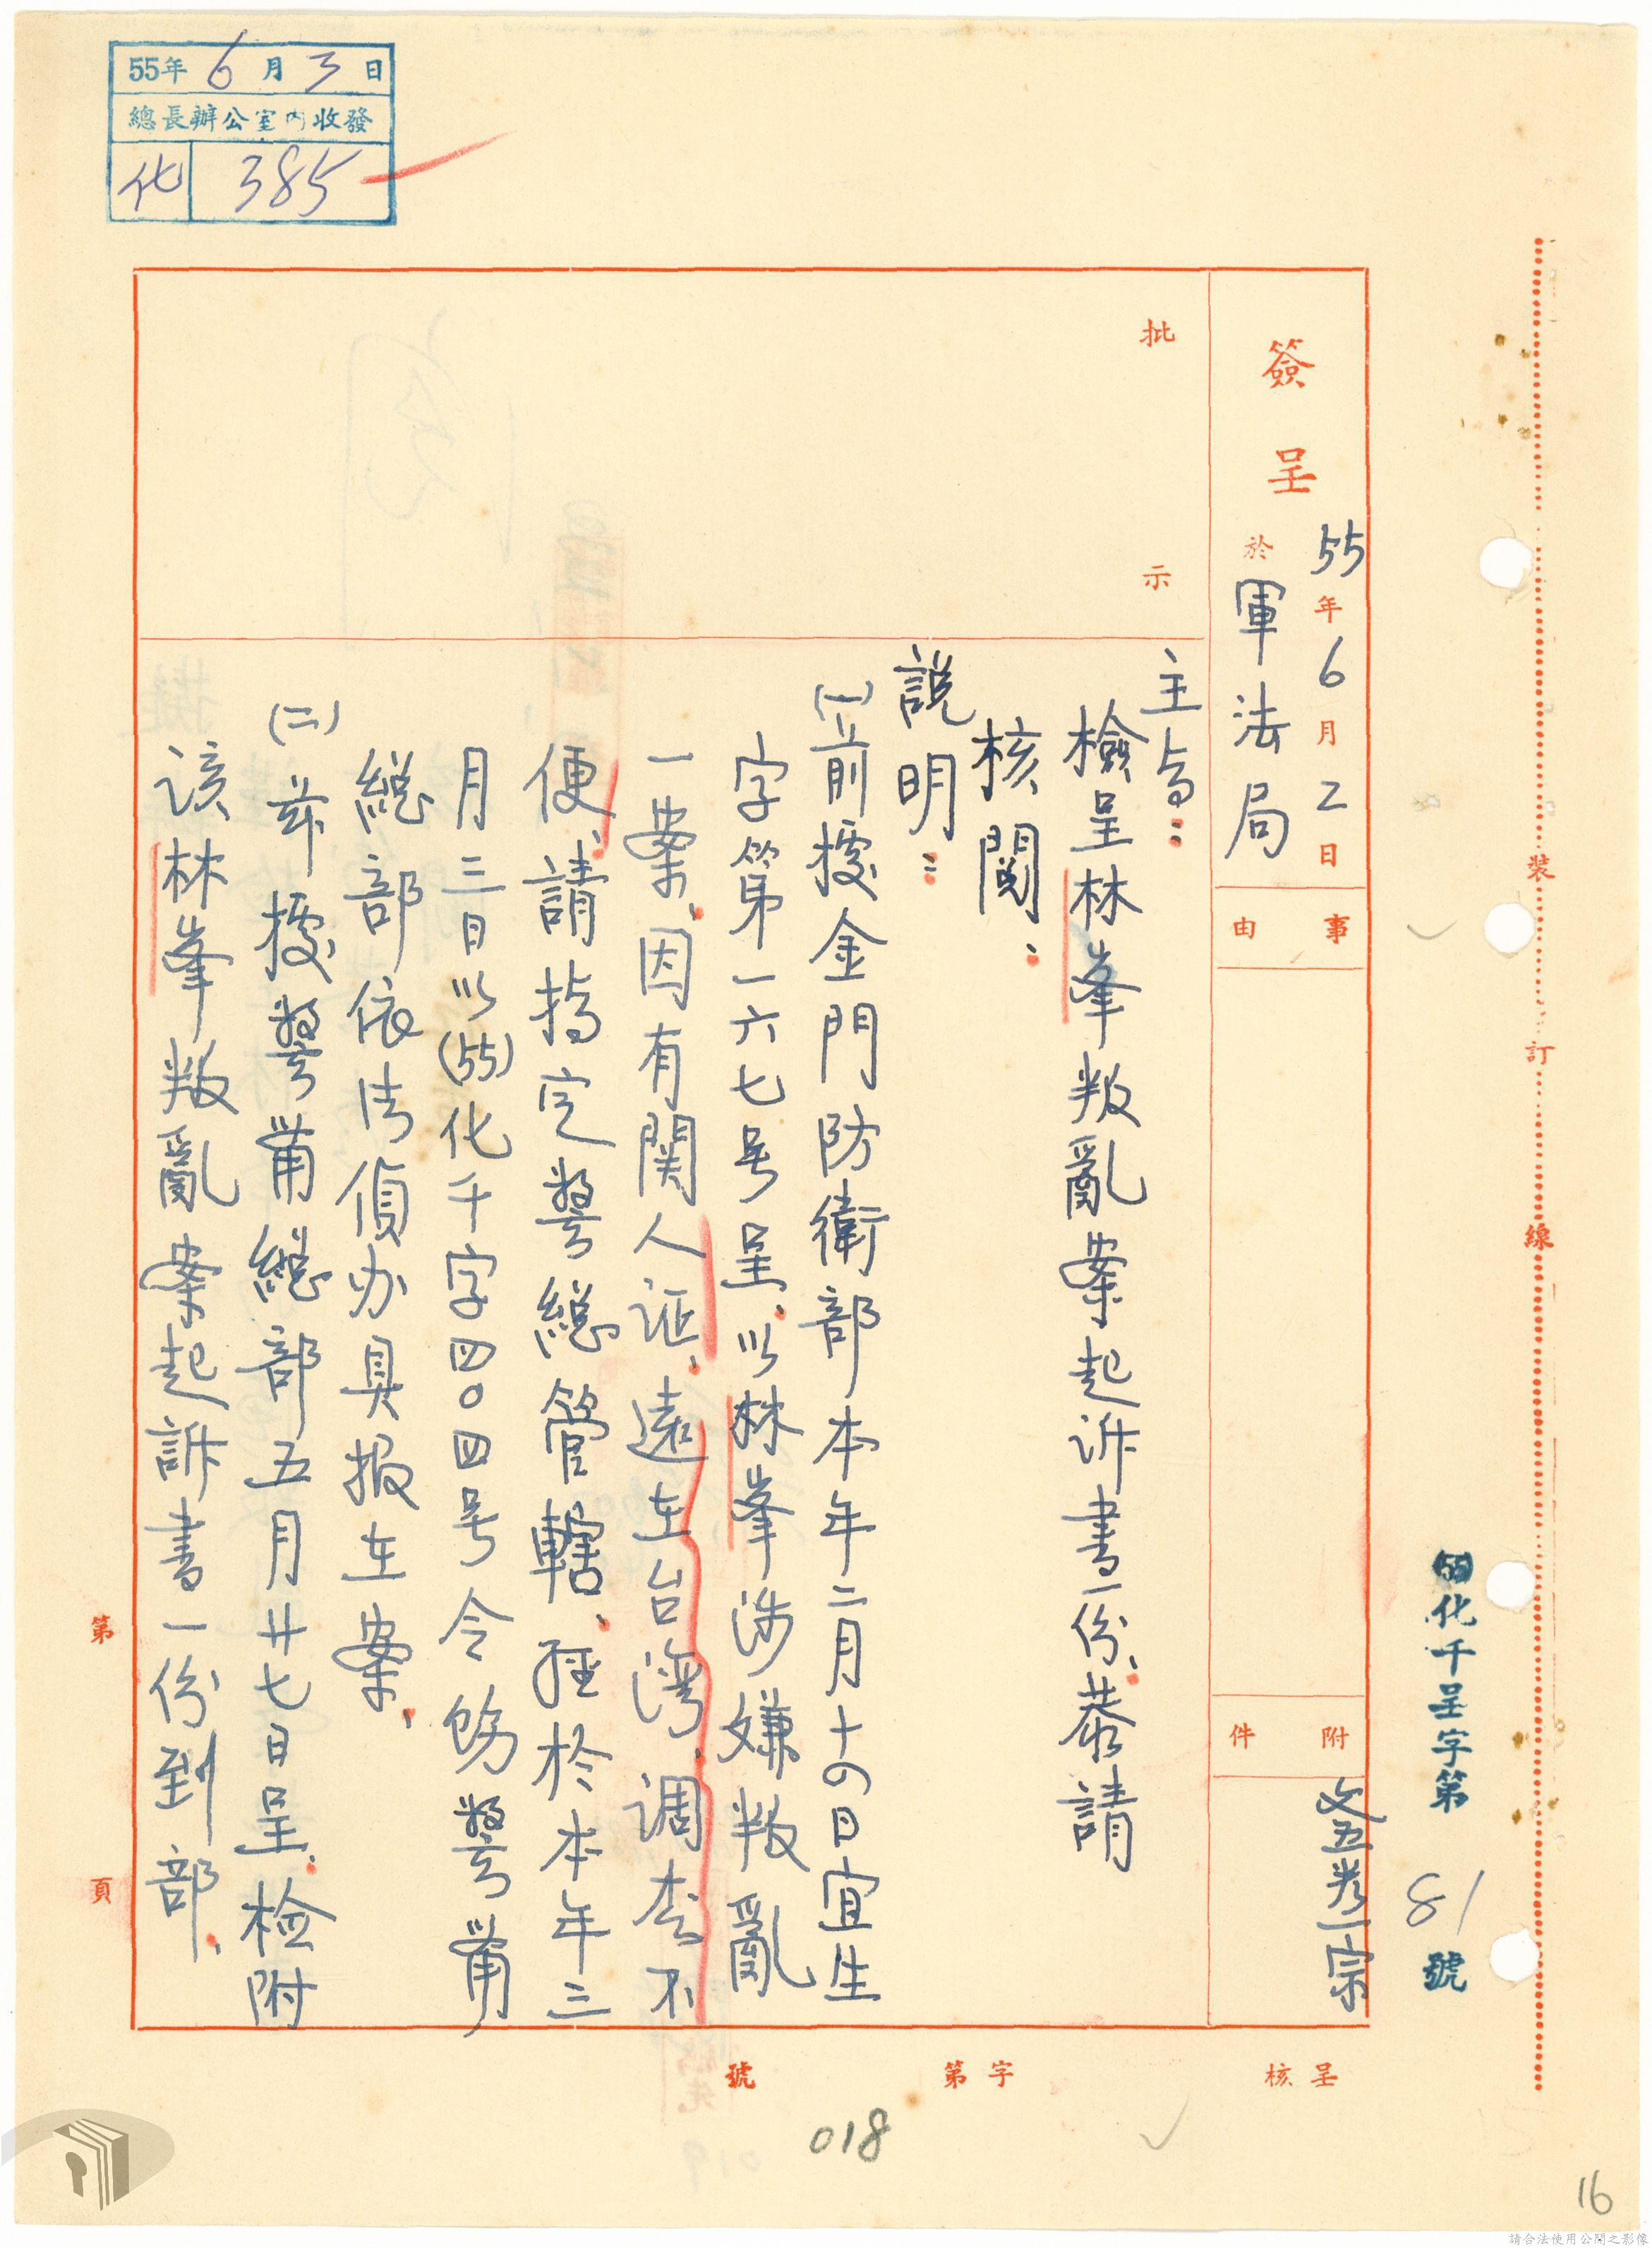 55年6月3日
總長辦公室內收發
化 385
簽呈
55年6月2日
於軍法局
事由
附件
文卷一宗
批示
主旨：
檢呈林峯叛亂案起诉書一份、恭請
核閱：
說明：
(一)前據金門防衛部本年二月十四日宜生
字第一六七号呈、以林峯涉嫌叛亂
一案、因有関人证、遠在台湾、调查不
便、請指定警總管轄、經於本年三
月三日以(55)化千字四〇四号令飭警備
總部依法偵办具报在案、
(二)茲據警備總部五月廿七日呈、检附
该林峯叛亂案起訴書一份到部、
第 頁
裝訂線
(55)化千呈字第 81 號
呈核
字第
號
018
16
請合法使用公開之影像